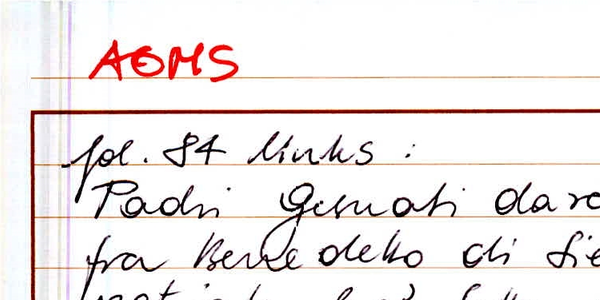 AOMS
fol. 84 links :
Padri Gesuati dare
fra Benedetto di Sie